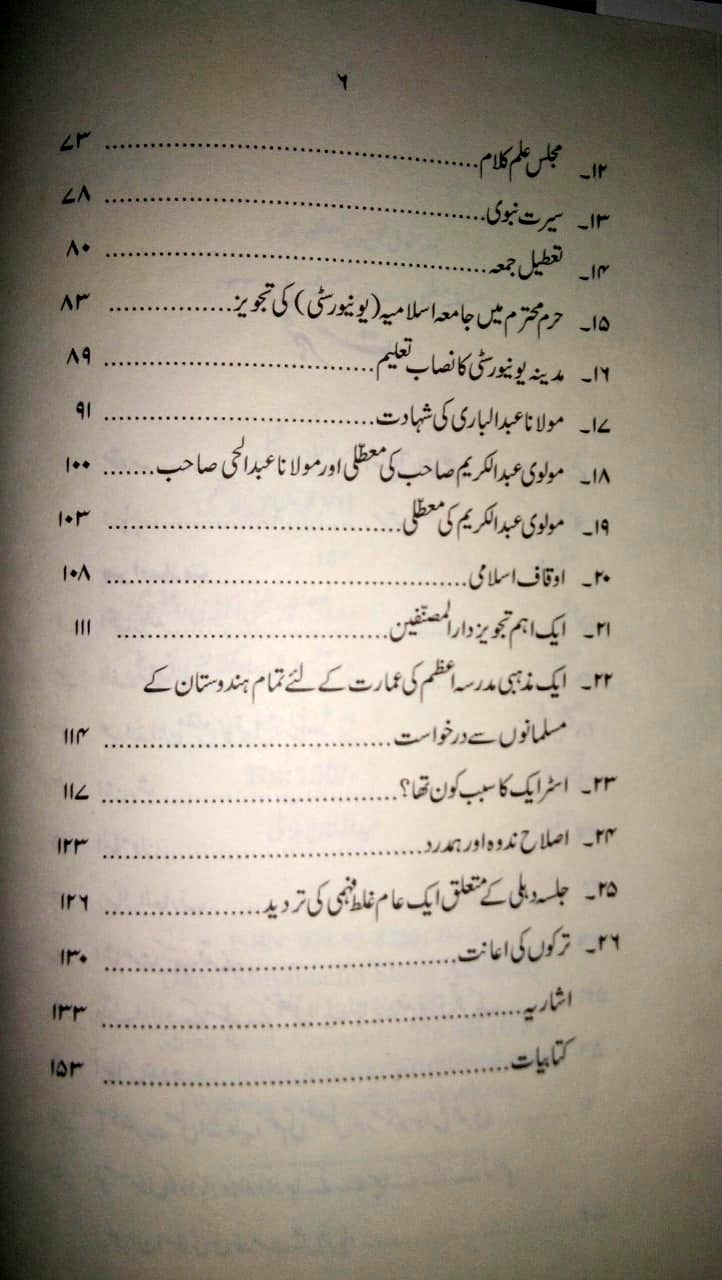 ۶
۱۲۔ مجلس علم کلام ۷۳
۱۳۔ سیرت نبوی ۷۸
۱۴۔ تعطیل جمعہ ۸۰
۱۵۔ حرم محترم میں جامعہ اسلامیہ (یونیورسٹی) کی تجویز ۸۳
۱۶۔ مدینہ یونیورسٹی کا نصاب تعلیم ۸۹
۱۷۔ مولانا عبدالباری کی شہادت ۹۱
۱۸۔ مولوی عبدالکریم صاحب کی معطلی اور مولانا عبدالحی صاحب ۱۰۰
۱۹۔ مولوی عبدالکریم کی معطلی ۱۰۳
۲۰۔ اوقاف اسلامی ۱۰۸
۲۱۔ ایک اہم تجویز دارالمصنّفین ۱۱۱
۲۲۔ ایک مذہبی مدرسہ اعظم کی عمارت کے لئے تمام ہندوستان کے
مسلمانوں سے درخواست ۱۱۴
۲۳۔ اسٹرایک کا سبب کون تھا؟ ۱۱۷
۲۴۔ اصلاح ندوہ اور ہمدرد ۱۲۳
۲۵۔ جلسہ دہلی کے متعلق ایک عام غلط فہمی کی تردید ۱۲۶
۲۶۔ ترکوں کی اعانت ۱۳۰
اشاریہ ۱۳۳
کتابیات ۱۵۳